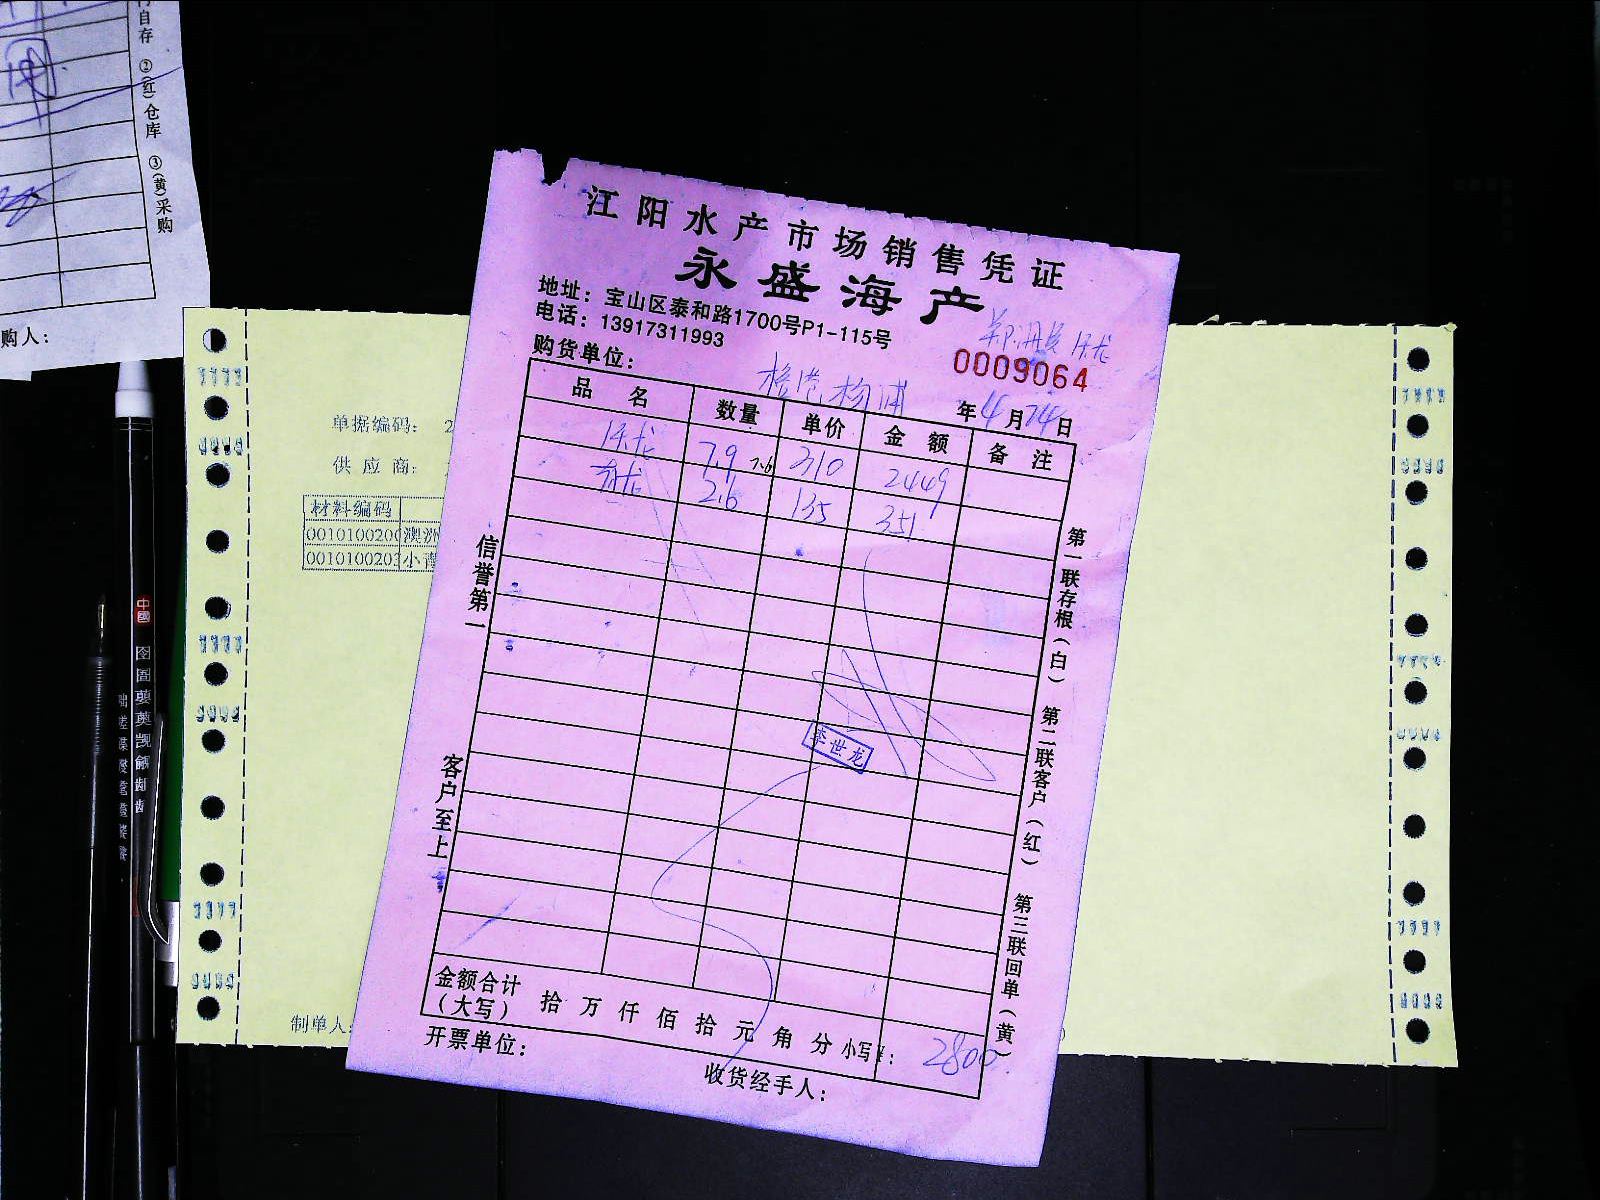 自存 ②(红)仓库 ③(黄)采购
购人：
江阳水产市场销售凭证
永盛海产
地址：宝山区泰和路1700号P1-115号
电话：13917311993
0009064
购货单位：
年4月14日
品名 数量 单价 金额 备注
7.9 7.6 310 2449
2.6 135 351
信誉第一
客户至上
第一联存根(白) 第二联客户(红) 第三联回单(黄)
李世龙
金额合计(大写) 拾万仟佰拾元角分 小写¥： 2800
开票单位：
收货经手人：
单据编码：2
供应商：
材料编码
0010100200 澳洲
0010100203 小青
制单人：
中國